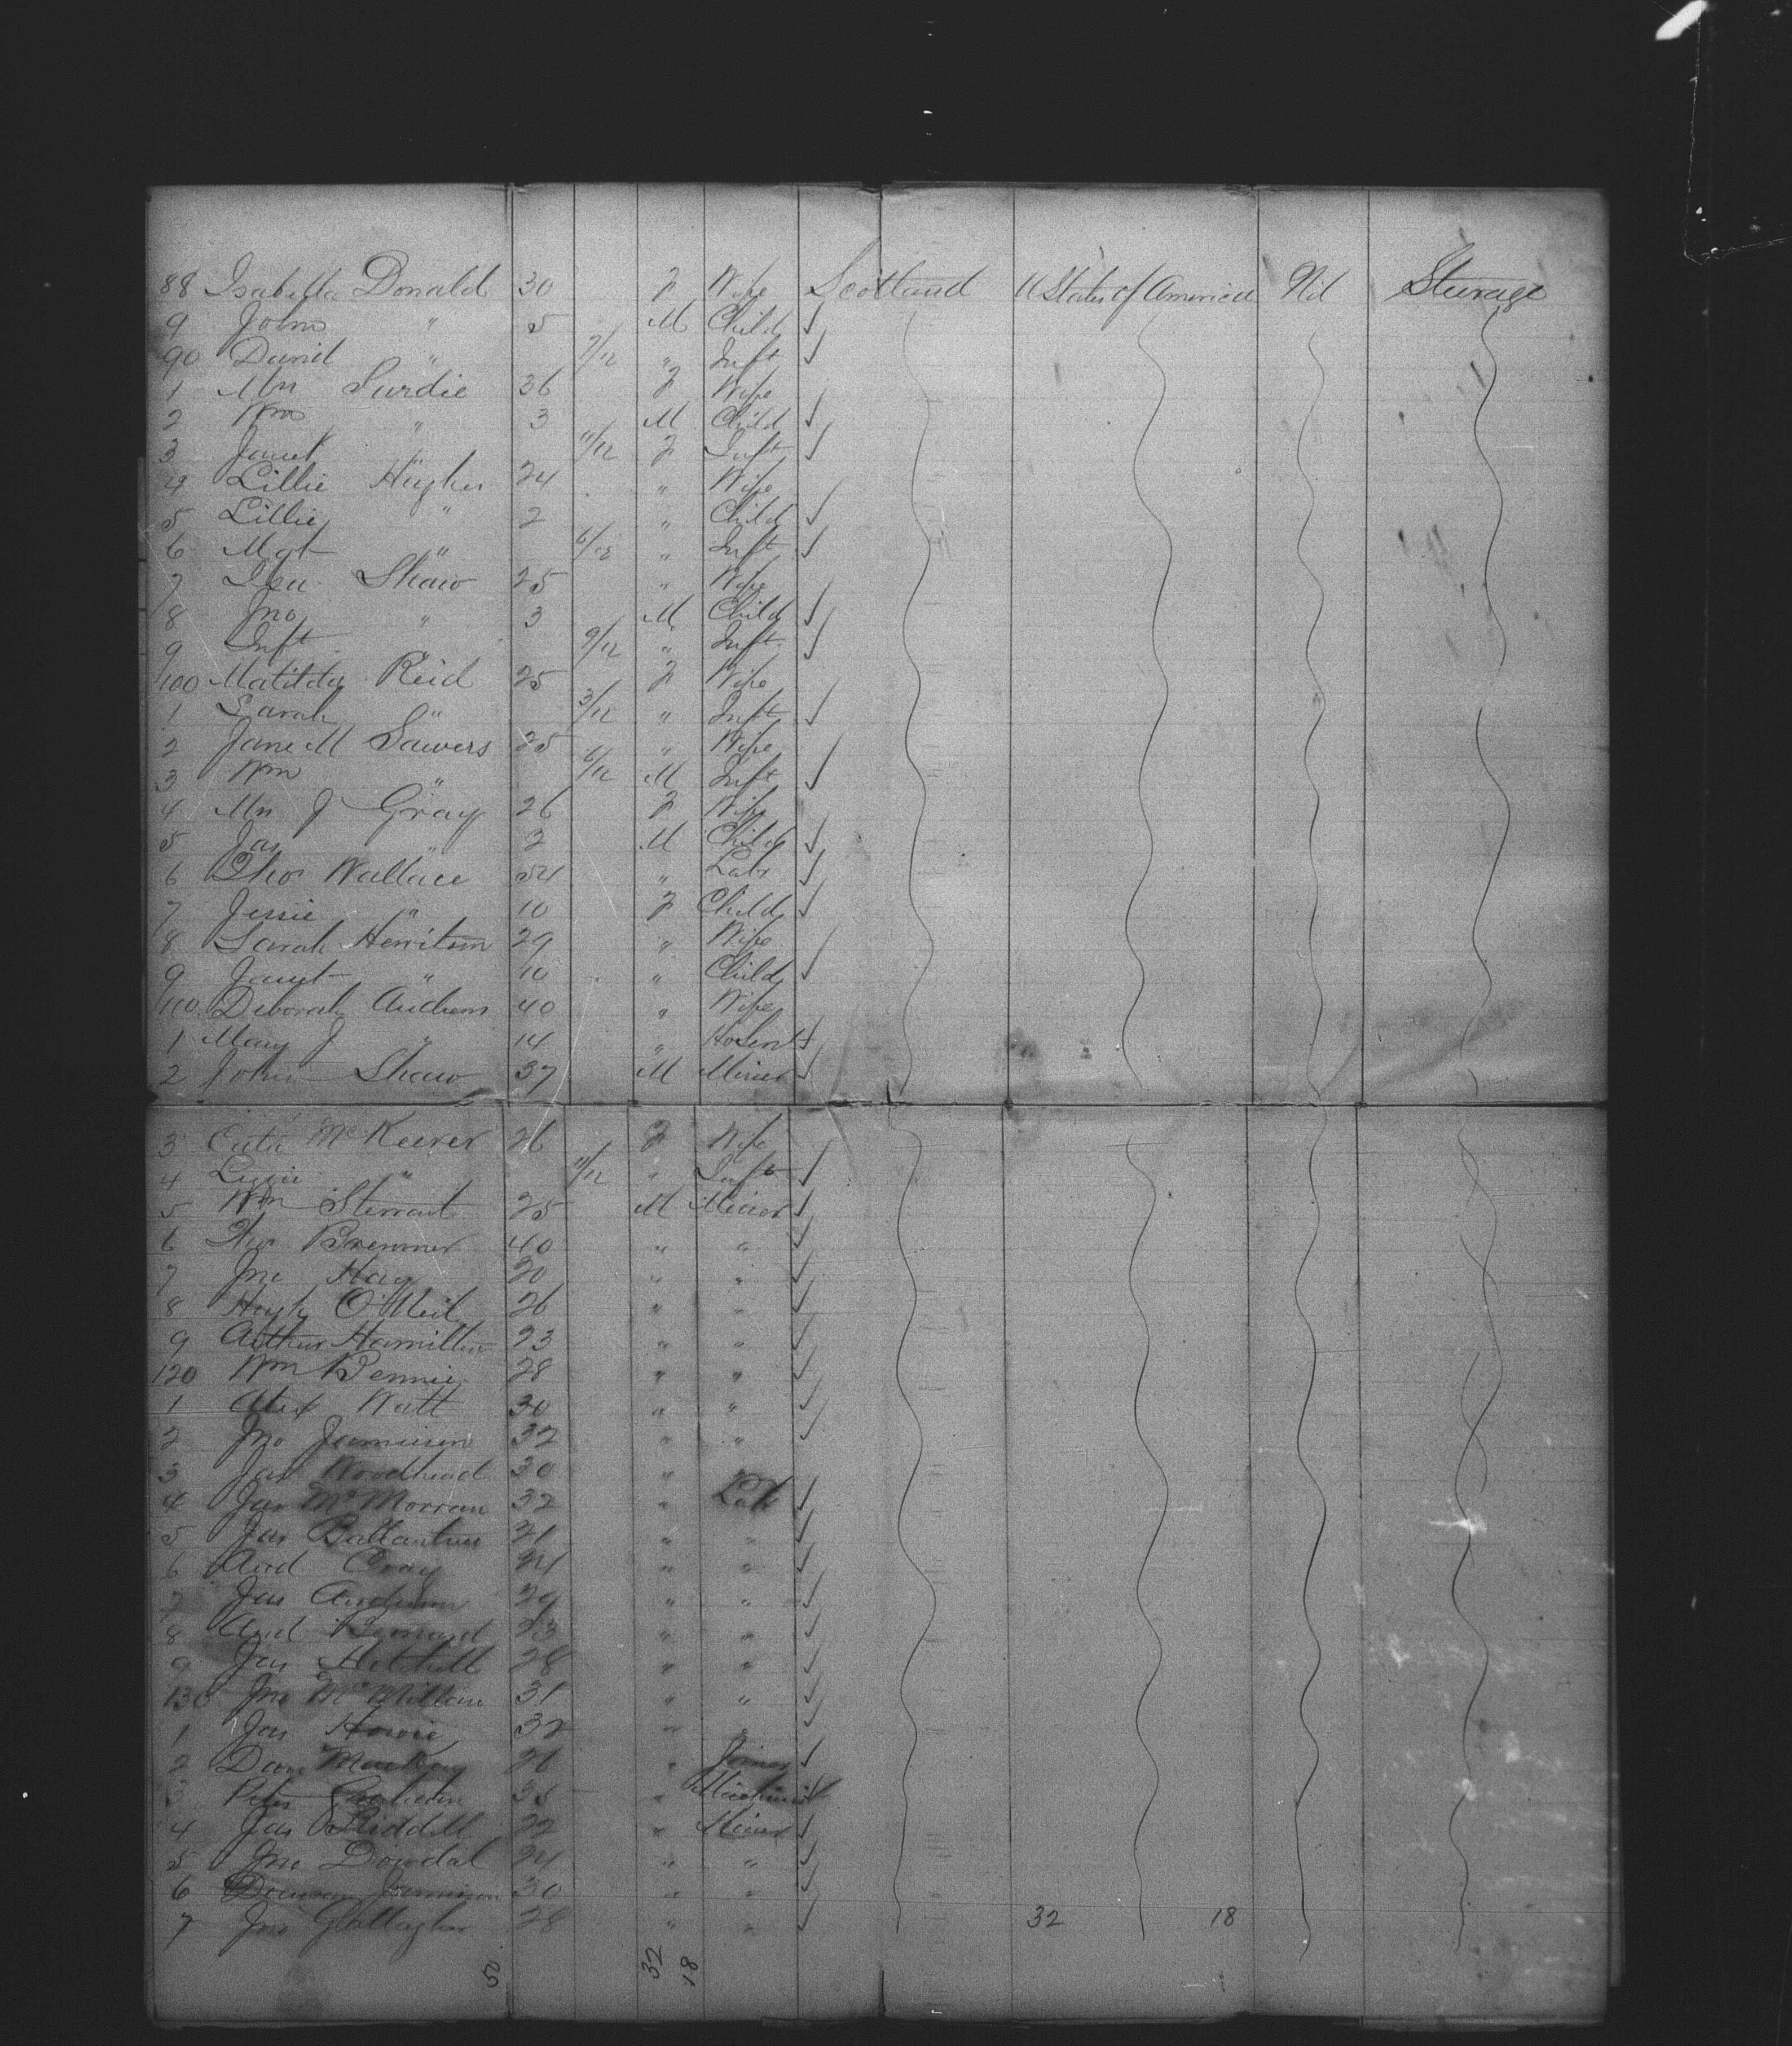 88 Isabella Donald 30 F Wife Scotland U States of America Nil Steerage
9 John " 5 M Child ✓
90 David " 7/12 " Inft ✓
1 Mrs Purdie 36 F Wife
2 Wm " 3 M Child ✓
3 Janet " 11/12 F Inft ✓
4 Lillie Hughes 24 " Wife
5 Lillie " 2 " Child ✓
6 Mgt " 6/12 " Inft ✓
7 Isa Shaw 25 " Wife
8 Jno " 3 M Child ✓
9 Inft 9/12 " Inft ✓
100 Matilda Reid 25 F Wife
1 Sarah " 3/12 " Inft ✓
2 Jane M Sawers 25 " Wife
3 Wm " 6/12 M Inft ✓
4 Mrs J Gray 26 F Wife
5 Jas " 2 M Child ✓
6 Thos Wallace 54 " Labr ✓
7 Jessie " 10 F Child ✓
8 Sarah 29 " Wife
9 Janet " 10 " Child ✓
110 Deborah Andrews 40 " Wife
1 Mary J " 14 " Ho Servt ✓
2 John Shaw 37 M Miner ✓
3 Cath McKeever 26 F Wife
4 Lizzie " 11/12 " Inft ✓
5 Wm Sterrat 25 M Miner ✓
6 Thos Bremner 40 " " ✓
7 Jno Hay 20 " " ✓
8 Hugh O'Neil 26 " " ✓
9 Arthur Hamilton 23 " " ✓
120 Wm Rennie 28 " " ✓
1 Alex Watt 30 " " ✓
2 Jno Jamieson 32 " " ✓
3 Jas Woodhead 30 "
4 Jas McMorran 32 " Labr ✓
5 Jas Ballantine 21 " " ✓
6 And 24 " " ✓
7 Jas Anderson 29 " " ✓
8 And 23 " " ✓
9 Jas Mitchell 28 " " ✓
130 Jno McMillan 31 " " ✓
1 Jas Howie 32 " " ✓
2 Dan MacKay 26 " Joiner ✓
3 Peter Graham 35 " Machinist ✓
4 Jas Riddell 22 " Miner ✓
5 Jno Dowdal 24 " " ✓
6 Jamieson 30 " " ✓
7 Jno Gallagher 28 " " ✓ 32 18
50 32 18